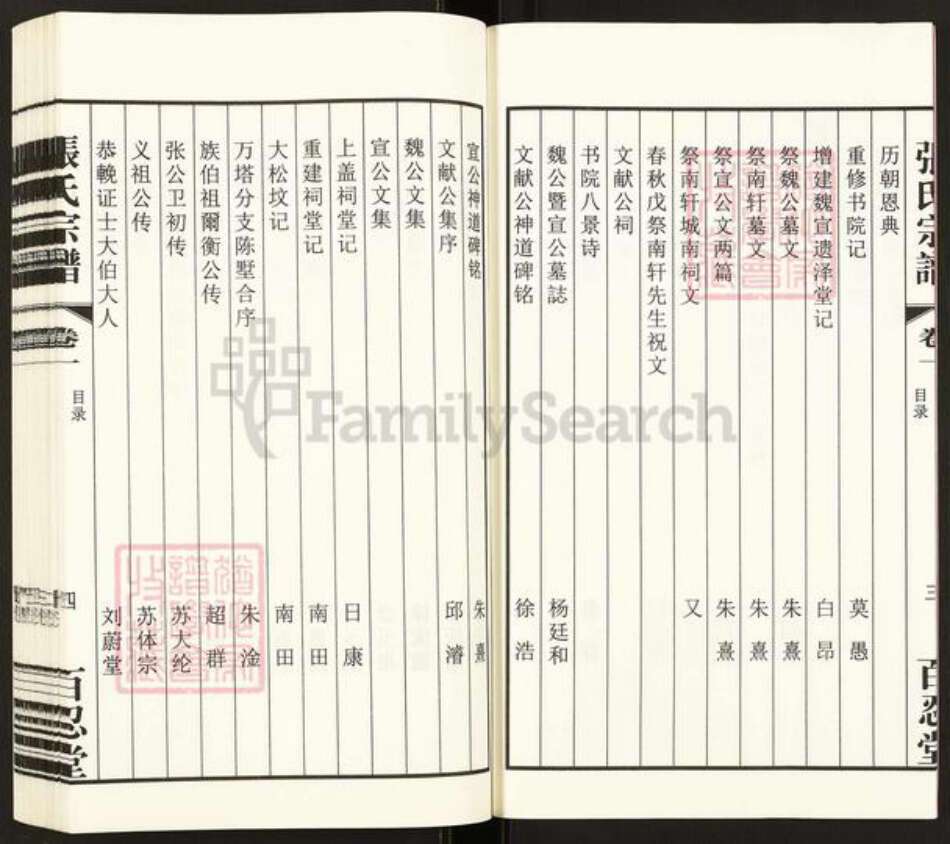 張氏宗譜
卷一
目录
三
百忍堂
历朝恩典
重修书院记 莫愚
增建魏宣遗泽堂记 白昂
祭魏公墓文 朱熹
祭南轩墓文 朱熹
祭宣公文两篇 朱熹
祭南轩城南祠文 又
春秋戊祭南轩先生祝文
文献公祠
书院八景诗
魏公暨宣公墓誌 杨廷和
文献公神道碑铭 徐浩
宣公神道碑铭 朱熹
文献公集序 邱濬
魏公文集
宣公文集
上盖祠堂记 日康
重建祠堂记 南田
大松坟记 南田
万塔分支陈墅合序 朱淦
族伯祖爾衡公传 超群
张公卫初传 苏大纶
义祖公传 苏体宗
恭輓证士大伯大人 刘蔚堂
張氏宗譜
卷一
目录
四
百忍堂
FamilySearch